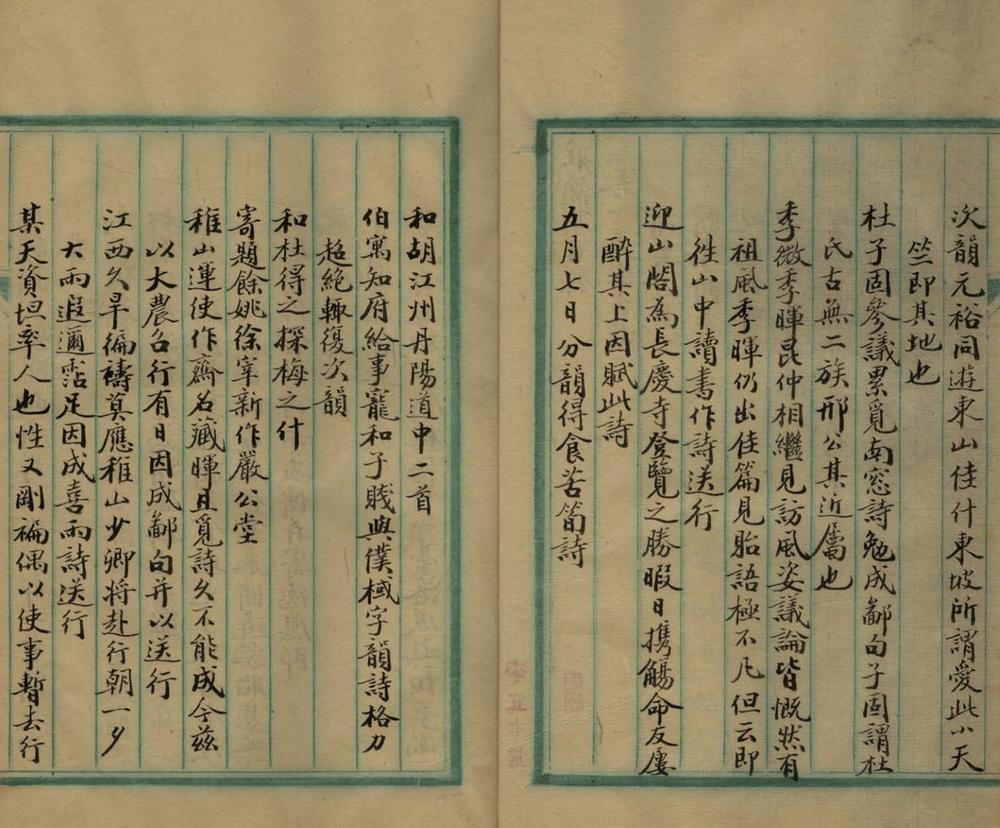 次韻元裕同遊東山佳什東坡所謂愛此小天
竺即其地也
杜子固參議累覓南窓詩勉成鄙句子固謂杜
氏古無二族邢公其近屬也
季微季暉昆仲相繼見訪風姿議論皆慨然有
祖風季暉仍出佳篇見貽語極不凡但云即
徃山中讀書作詩送行
迎山閣為長慶寺登覽之勝暇日携觴命友屢
醉其上因賦此詩
五月七日分韻得食苦筍詩
和胡江州丹陽道中二首
伯寓知府給事寵和子賤與僕棫字韻詩格力
超絶輙復次韻
和杜得之探梅之什
寄題餘姚徐宰新作嚴公堂
稚山運使作齋名藏暉且覓詩久不能成今茲
以大農召行有日因成鄙句并以送行
江西久旱徧禱莫應稚山少卿将赴行朝一夕
大雨遐邇霑足因成喜雨詩送行
某天資坦率人也性又剛褊偶以使事暫去行